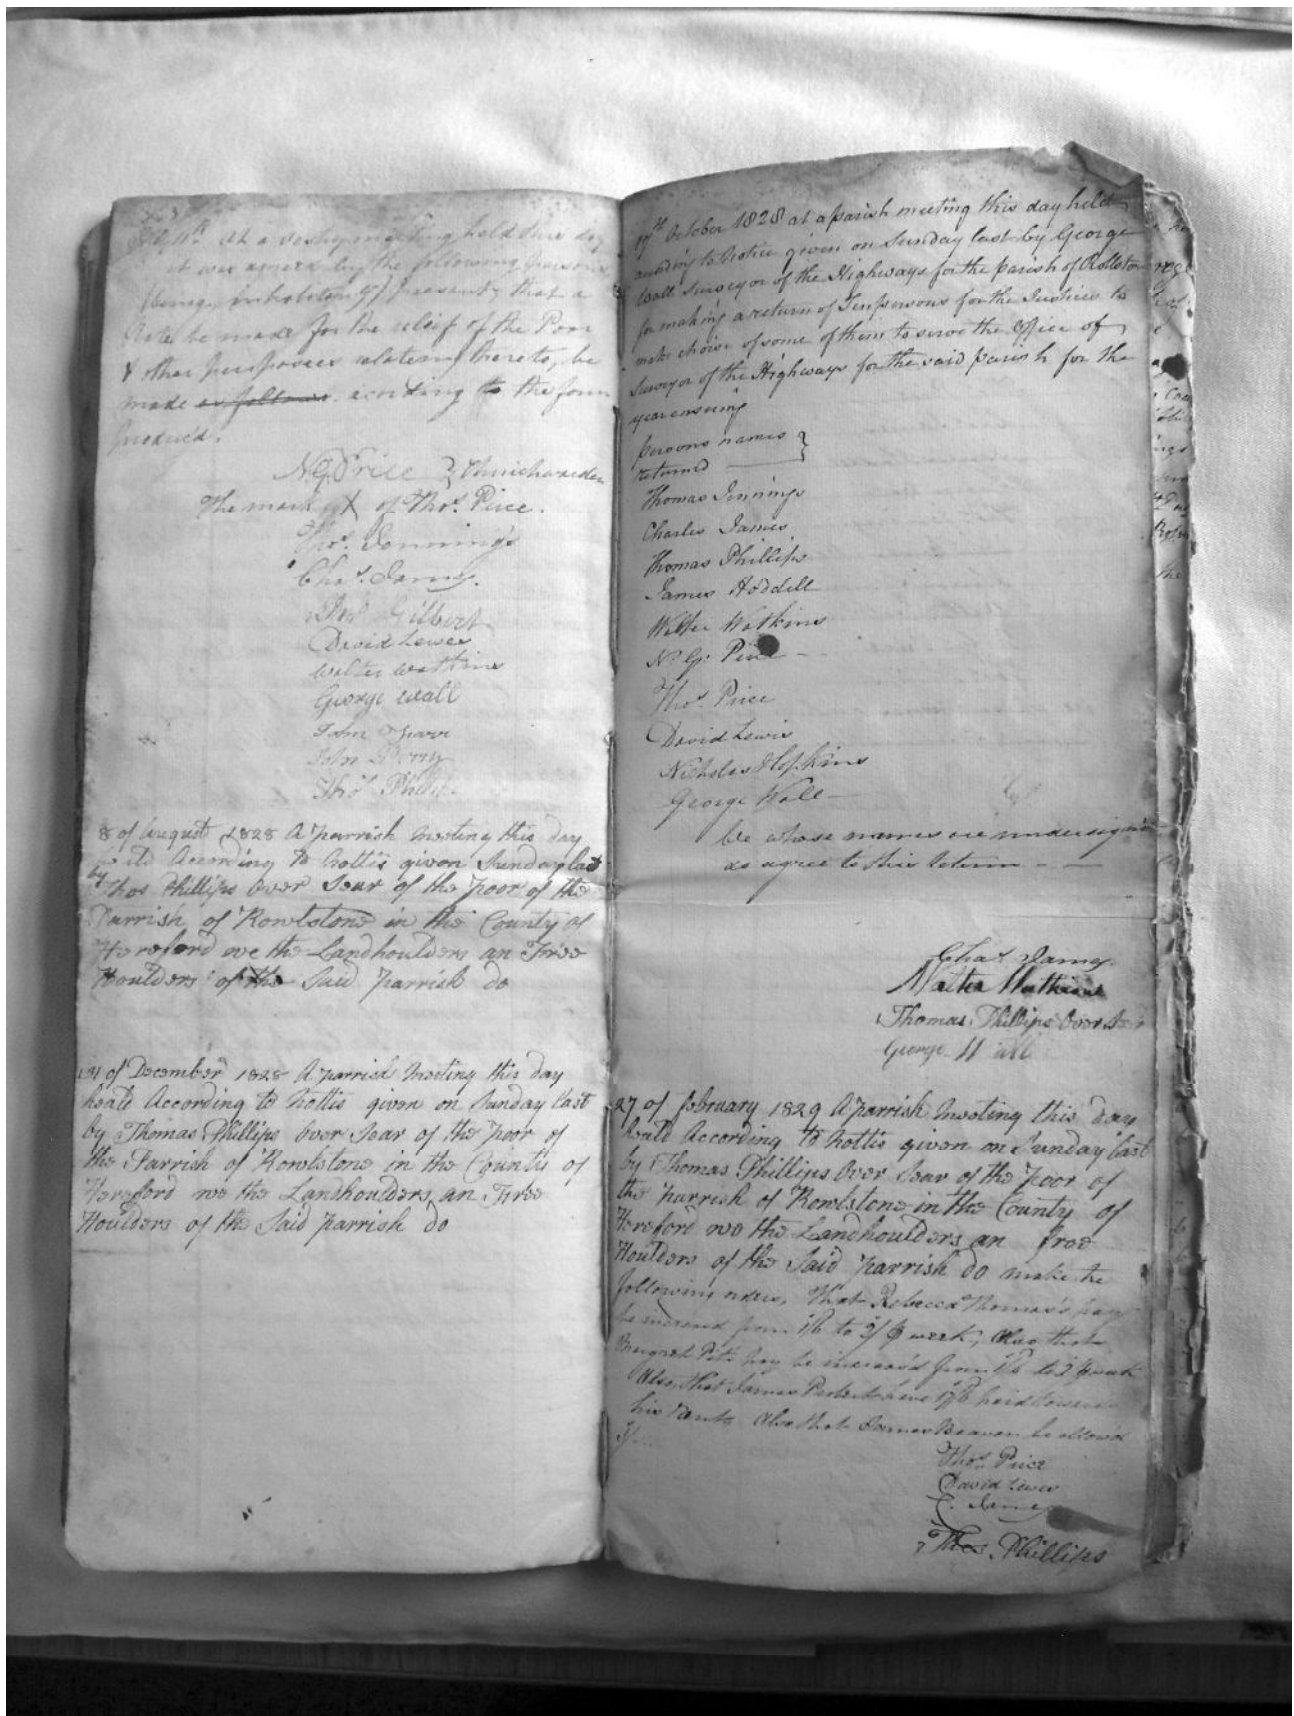 At a vestry meeting held this day
it was agreed by the following persons
(being Inhabitants) present, that a
Rate be made for the releif of the Poor
& other purposes relating thereto, be
made as follows. acording to the form
produc'd.
N. G. Price } Churchwarden
The mark X of Thos. Price.
Thos. Jennings
Chas. James.
Gilbert
David Lewes
Walter Watkins
George Wall
John
John
Thos. Phillips
8 of August 1828 A parrish Meeting this day
Acording to Nottis given Sunday last
by Thos Phillips Over Sear of the poor of the
Parrish of Rowlstone in the County of
Hereford we the Landhoulders an Free
Houlders of the Said parrish do
31 of December 1828 A parrish Meeting this day
heald According to Nottis given on Sunday last
by Thomas Phillips Over Sear of the poor of
the Parrish of Rowlstone in the County of
Hereford we the Landhoulders an Free
Houlders of the Said parrish do
October 1828 at a parish meeting this day held
acording to Notice given on Sunday last by George
Wall Surveyor of the Highways for the parish of Rollston
for making a return of Ten persons for the Justices to
make choise of some of them to serve the Office of
Surveyor of the Highways for the said parish for the
year ensuing
persons names }
returned
Thomas Jennings
Charles James
Thomas Phillips
James Hoddell
Walter Watkins
N. G. Price
Thos. Price
David Lewis
Nicholas Hopkins
George Wall
We whose names are undersigned
do agree to this return
Chas. James
Walter Watkins
Thomas Phillips Over Sear
George Wall
27 of february 1829 A parrish Meeting this day
heald According to Nottis given on Sunday last
by Thomas Phillips Over Sear of the poor of
the parrish of Rowlstone in the County of
Hereford we the Landhoulders an free
Houlders of the Said parrish do make the
following orders, That Rebecca Thomas's pay
be increased from 1/6 to 2/ week, Also that
pay be increas'd from 1/6 to 2 week
Also, that James have paid towards
his rent. Also that James Beavan be allow'd
Thos. Price
David Lewes
C. James
Thos. Phillips